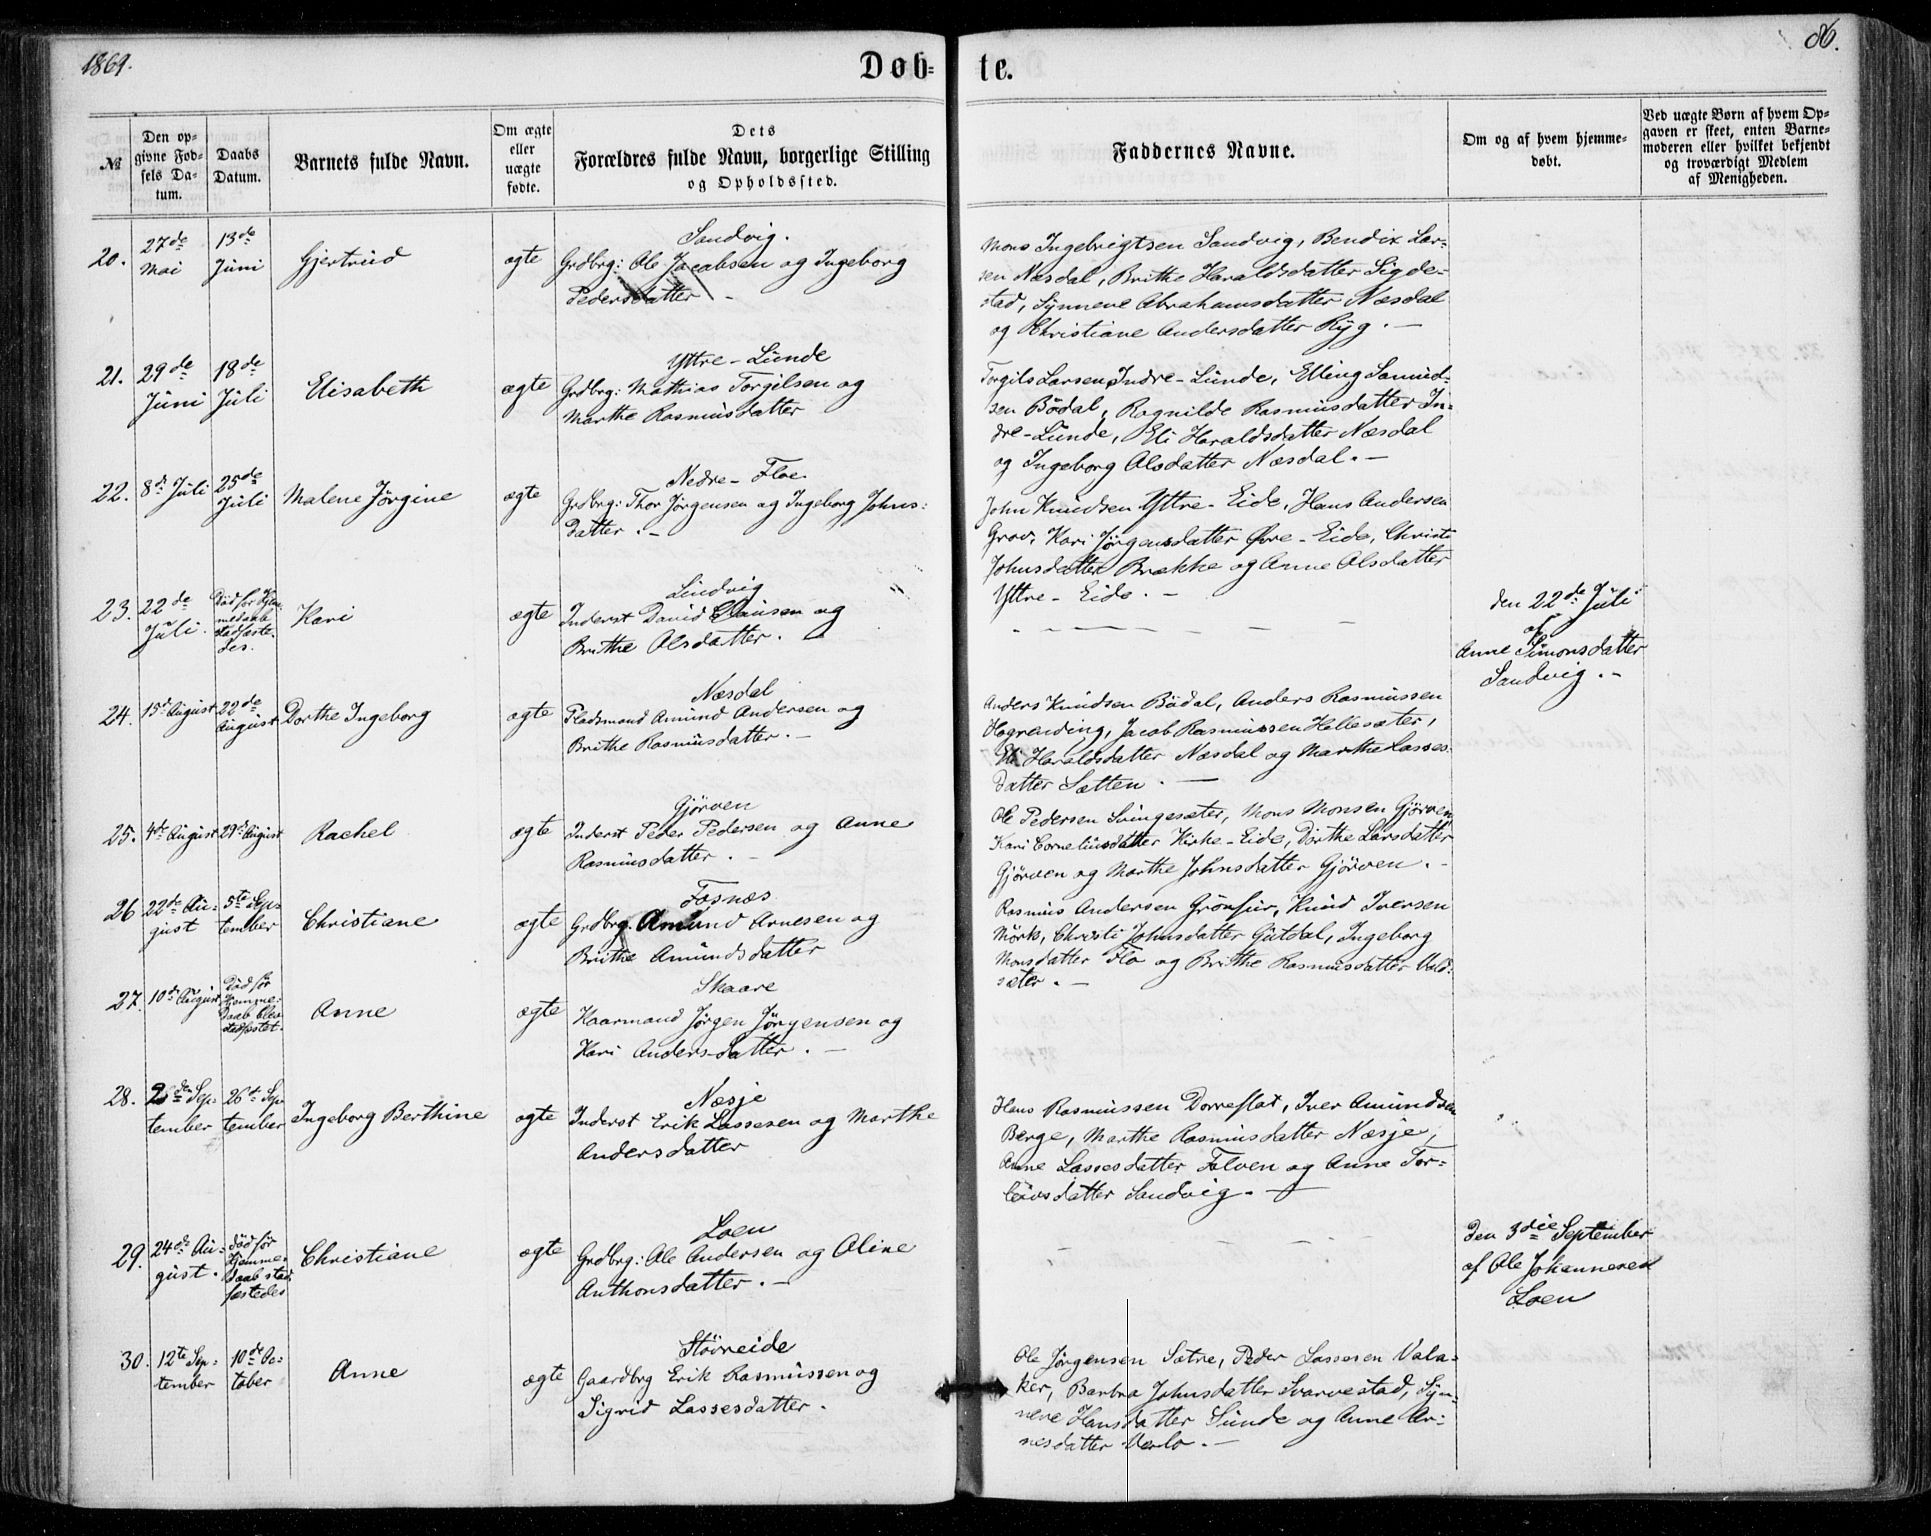 1869.
Døb-
te.
86.
№
Den op-
givne Fød-
sels Da-
tum.
Daabs
Datum.
Barnets fulde Navn.
Om ægte
eller
uægte
fødte.
Dets
Forældres fulde Navn, borgerlige Stilling
og Opholdssted.
Faddernes Navne.
Om og af hvem hjemme-
døbt.
Ved uægte Børn af hvem Op-
gaven er skeet, enten Barne-
moderen eller hvilket bekjendt
og troværdigt Medlem
af Menigheden.
20.
27de
Mai
13de
Juni
Gjertrud
ægte
Sandvig.
Grdbrg: Ole Jacobsen og Ingeborg
Pedersdatter –
Mons Ingebrigtsen Sandvig, Bendix Lar-
sen Næsdal, Brithe Haraldsdatter Sigde-
stad, Synneve Abrahamsdatter Næsdal
og Christiane Andersdatter Ryg. –
21.
29de
Juni
18de
Juli
Elisabeth
ægte
Yttre-Lunde
Grdbrg: Mathias Torgilsen og
Marthe Rasmusdatter
Torgils Larsen Indre-Lunde, Elling Samuel-
sen Bødal, Ragnilde Rasmusdatter In-
dre-Lunde, Eli Haraldsdatter Næsdal
og Ingeborg Olsdatter Næsdal. –
22.
8de Juli
25de
Juli
Malene Jørgine
ægte
Nedre-Floe
Grdbrg: Thor Jørgensen og Ingeborg Johns-
datter. –
John Knudsen Yttre-Eide, Hans Andersen
Grov, Kari Jørgensdatter Øvre-Eide, Christi
Johnsdatter Brække og Anne Olsdatter
Yttre-Eide. –
23.
22de
Juli.
Død før Hjem-
medaab
stadfæste-
des.
Kari
ægte
Lindvig
Inderst David Clausen og
Brithe Olsdatter.
den 22de Juli
af
Anne Simonsdatter
Sandvig. –
24.
15de August
22de
August
Dorthe Ingeborg
ægte
Næsdal
Pladsmand Amund Andersen og
Brithe Rasmusdatter. –
Anders Knudsen Bødal, Anders Rasmussen
Hogrending, Jacob Rasmussen Hellesæter,
Eli Haraldsdatter Næsdal og Marthe Lasses-
datter Sætten. –
25.
4de August
29de August
Rachel
ægte
Gjørven
Inderst Peder Pedersen og Anne
Rasmusdatter. –
Ole Pedersen Svingesæter, Mons Monsen Gjørven,
Kari Corneliusdatter Kirke-Eide, Dorthe Larsdatter
Gjørven og Marthe Johnsdatter Gjørven. –
26
22de Au-
gust
5te Sep-
tember
Christiane
ægte
Fosnæs
Grdbrg. Amund Arnesen og
Brithe Amundsdatter
Rasmus Andersen Grönfur, Knud Iversen
Mørk, Christi Johnsdatter Gutdal, Ingeborg
Monsdatter Flo og Brithe Rasmusdatter Vold-
sæter. –
27.
10de August
Død før
Hjemme-
daab blev
stadfæstet.
Anne
ægte
Skaare
Haarmand Jørgen Jørgensen og
Kari Andersdatter. –
28.
2den Sep-
tember
26de Sep-
tember
Ingeborg Berthine
ægte
Næsje
Inderst Erik Lassesen og Marthe
Andersdatter
Hans Rasmussen Dorreflat, Iver Amundsen
Berge, Marthe Rasmusdatter Næsje,
Anne Lassesdatter Folven og Anne Tor-
leivsdatter Sandvig. –
29.
24de Au-
gust.
død før
Hjemme-
daab stad
fæstedes
Christiane
ægte
Loen
Grdbrg: Ole Andersen og Oline
Anthonsdatter. –
Den 3die September
af Ole Johannesen
Loen
30.
12te Sep-
tember
10de Oc-
tober
Anne
ægte
Støvreide
Gaardbrg Erik Rasmussen og
Sigrid Lassesdatter.
Ole Jørgensen Sætre, Peder Lassesen Vala-
ker, Barbra Johnsdatter Svarvestad, Syn-
neve Hansdatter Sunde og Anne Ar-
nesdatter Verlo. –